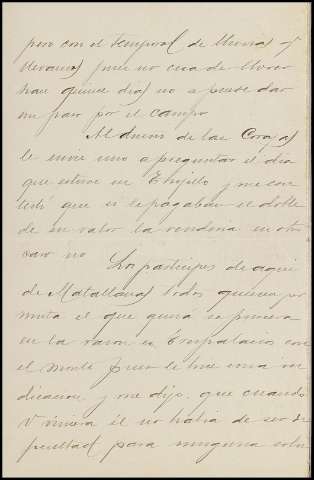 pero con el temporal de lluvias y
nevadas pues no cesa de llover
hace quince dias no se puede dar
un paso por el campo
Al dueño de las Corazas
le envie uno a preguntar el dia
que estuve en Trujillo y me con
testó que si le pagaban el doble
de su valor la venderia en otro
caso no
Los participes de aqui
de Matallanas todos quieren per
muta el que quiza se ponera
en la razon es Trespalacios con
el monte pues le hice una in
dicacion y me dijo que cuando
V viniera él no habia de ser di
ficultad para ninguna